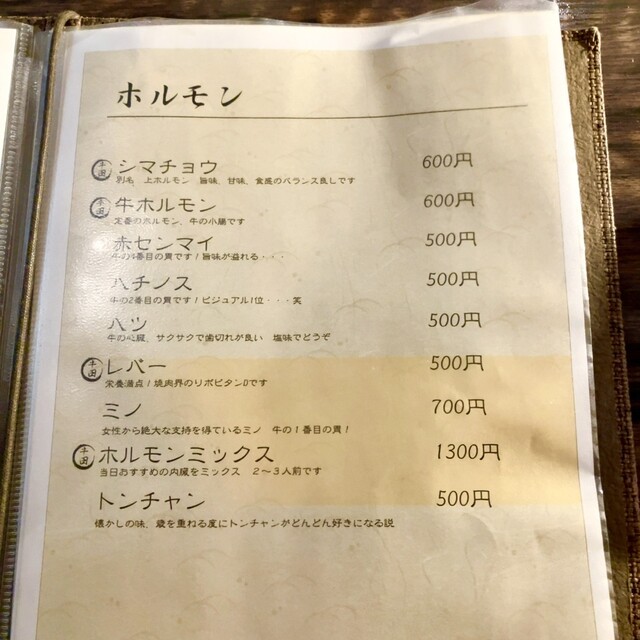 ホルモン
シマチョウ 600円
別名 上ホルモン 旨味、甘味、食感のバランス良しです
牛ホルモン 600円
定番のホルモン、牛の小腸です
赤センマイ 500円
牛の4番目の胃です！旨味が溢れる・・・
ハチノス 500円
牛の2番目の胃です！ビジュアル1位・・・笑
ハツ 500円
牛の心臓、サクサクで歯切れが良い 塩味でどうぞ
レバー 500円
栄養満点！焼肉界のリポビタンDです
ミノ 700円
女性から絶大な支持を得ているミノ 牛の1番目の胃！
ホルモンミックス 1300円
当日おすすめの内臓をミックス 2〜3人前です
トンチャン 500円
懐かしの味、歳を重ねる度にトンチャンがどんどん好きになる説